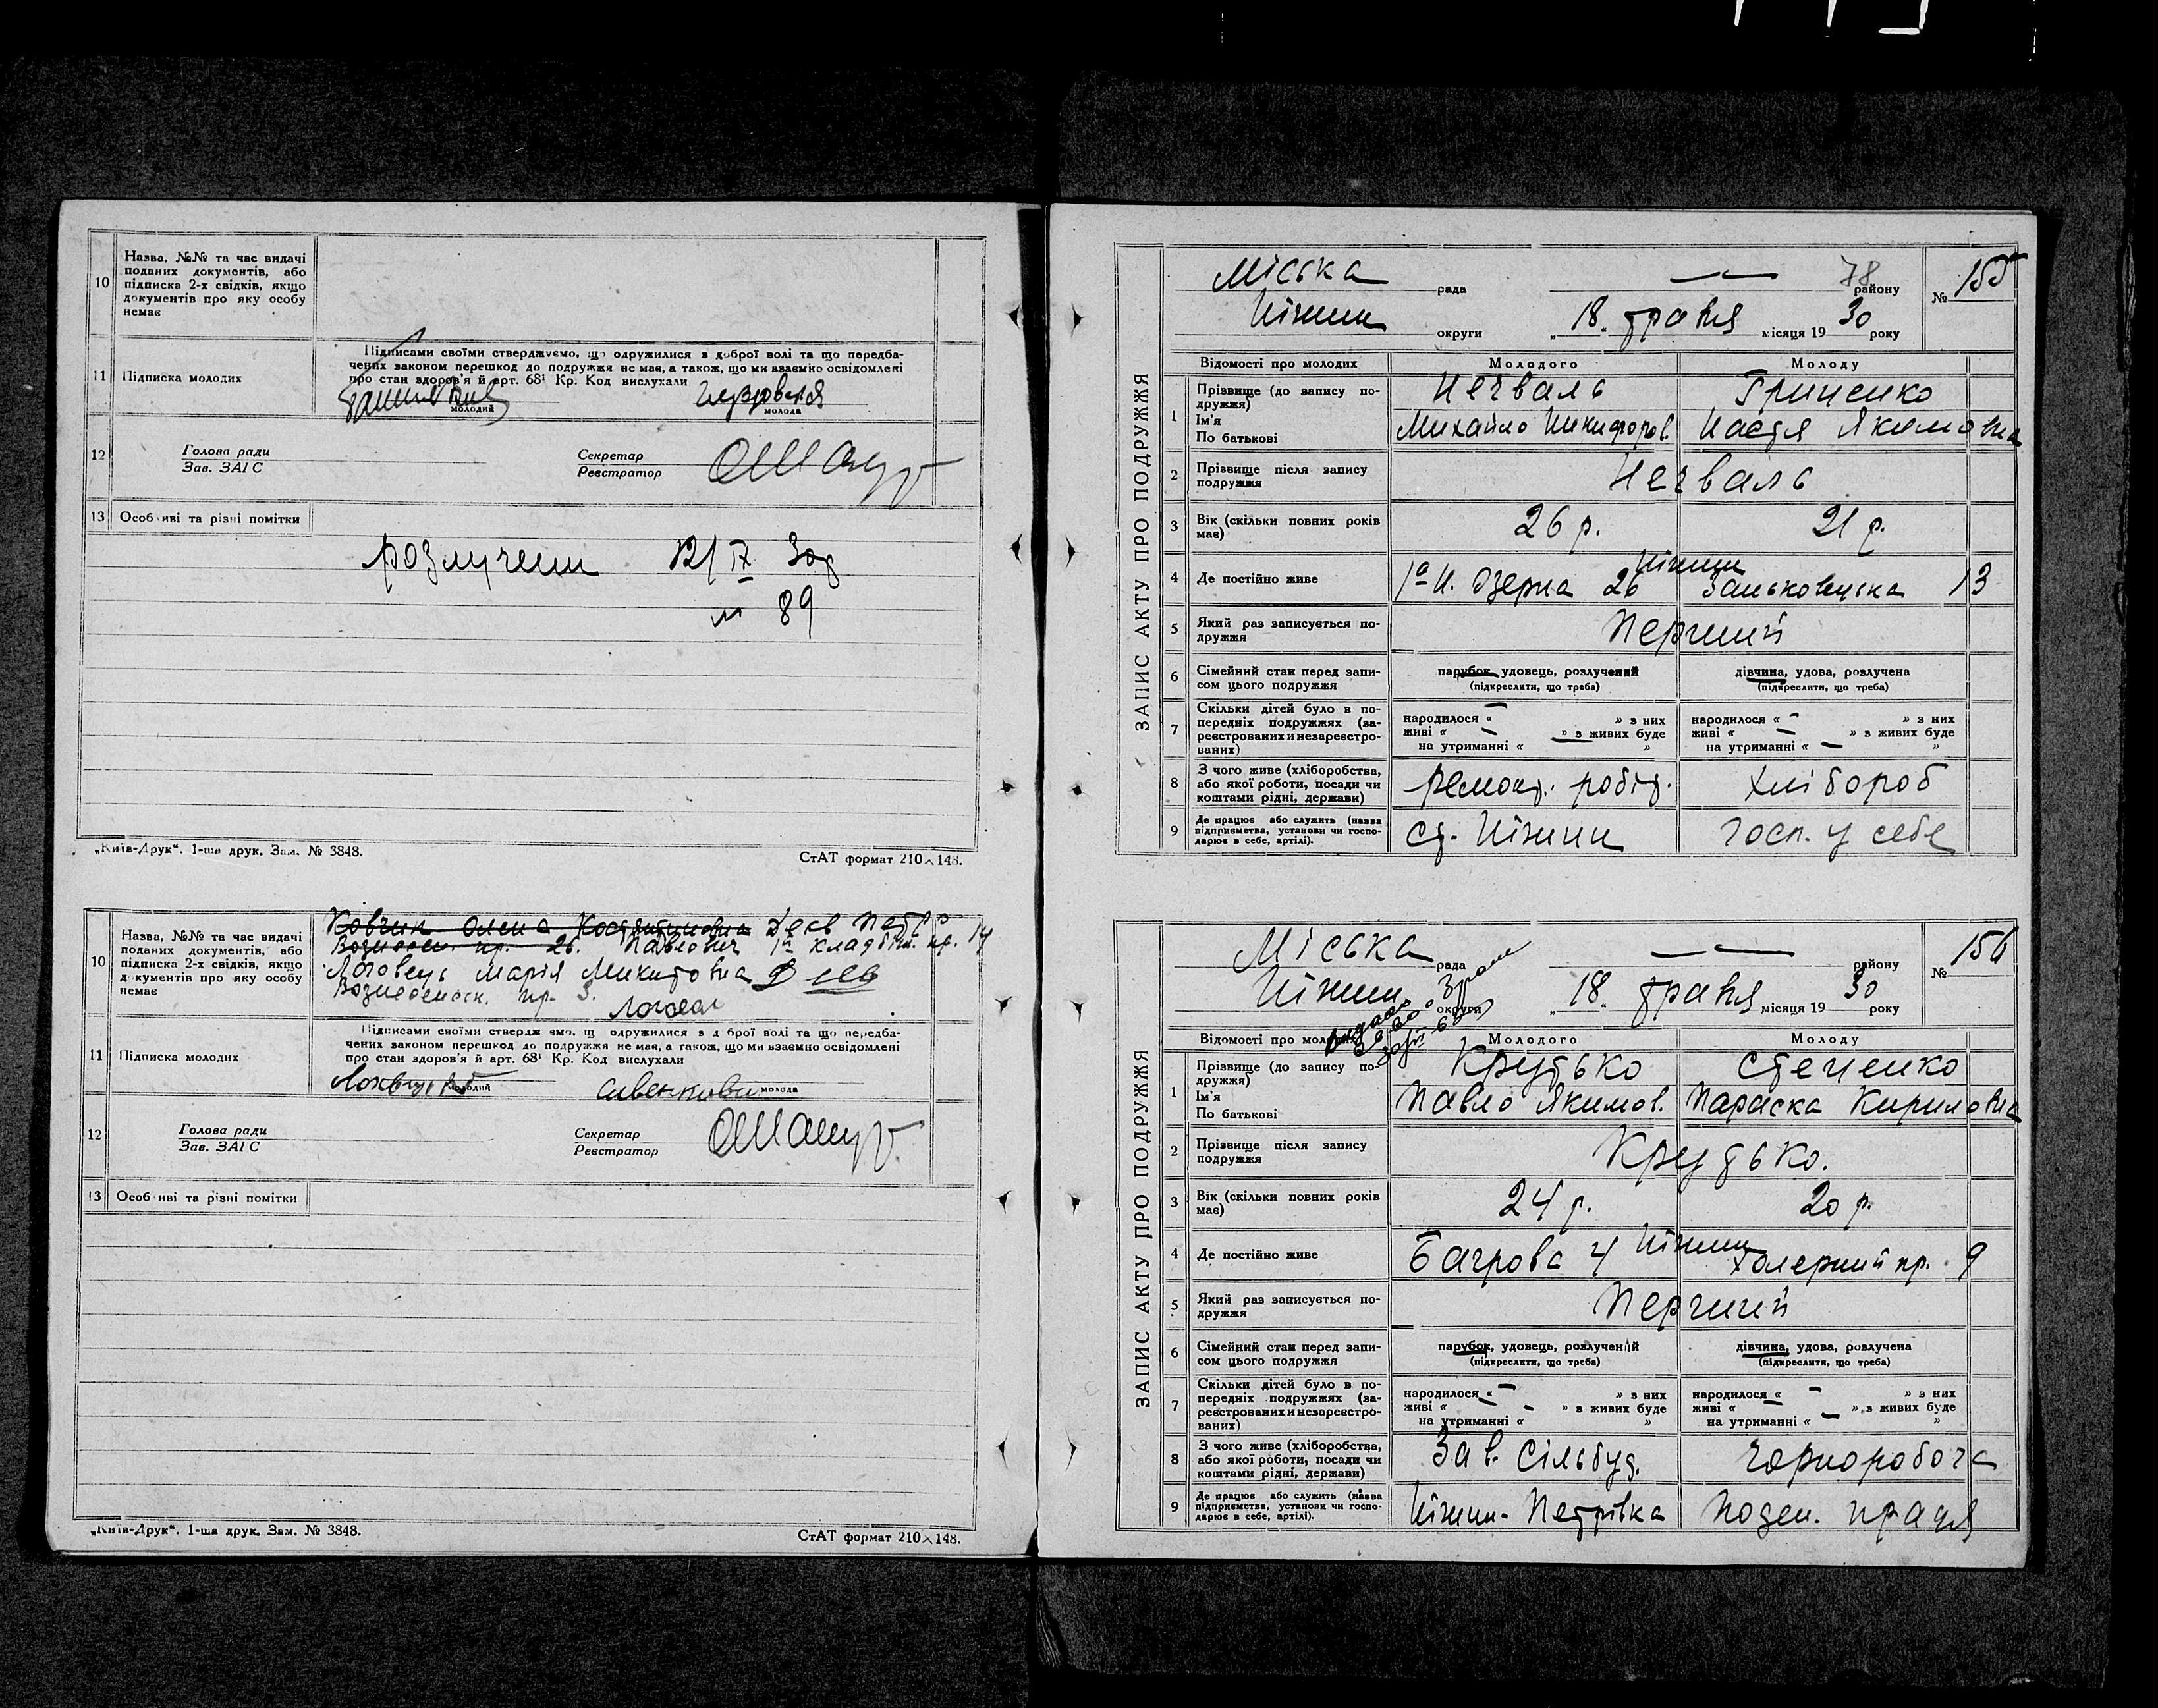 10 Назва, №№ та час видачі
поданих документів, або
підписка 2-х свідків, якщо
документів про яку особу
немає
11 Підписка молодих
Підписами своїми стверджуємо, що одружилися з доброї волі та що передба-
чених законом перешкод до подружжя не має, а також, що ми взаємно освідомлені
про стан здоров'я й арт. 68¹ Кр. Код вислухали
молодий молода
12 Голова ради
Зав. ЗАГС
Секретар
Реєстратор
13 Особливі та різні помітки
розлучени 12/IX 30р
№ 89
„Київ-Друк“. 1-ша друк. Зам. № 3848.
СтАТ формат 210×148.
10 Назва, №№ та час видачі
поданих документів, або
підписка 2-х свідків, якщо
документів про яку особу
немає
Ковчин Олена Костянтиновна Петро
26. Павлович 1й кладбищ. пр. 14
Логовець Марія Микитовна
Вознесенск. пр. 3.
11 Підписка молодих
Підписами своїми стверджуємо, що одружилися з доброї волі та що передба-
чених законом перешкод до подружжя не має, а також, що ми взаємно освідомлені
про стан здоров'я й арт. 68¹ Кр. Код вислухали
молодий молода
12 Голова ради
Зав. ЗАГС
Секретар
Реєстратор
13 Особливі та різні помітки
„Київ-Друк“. 1-ша друк. Зам. № 3848.
СтАТ формат 210×148.
ЗАПИС АКТУ ПРО ПОДРУЖЖЯ
Міська рада — району 78 № 155
Ніжин округи „18. травня місяця 1930 року
Відомості про молодих Молодого Молоду
1 Прізвище (до запису по-
дружжя)
Ім'я
По батькові
Нечваль Гриценко
Михайло Никифоров. Настя Якимовна
2 Прізвище після запису
подружжя
Нечваль
3 Вік (скільки повних років
має)
26 р. 21 р.
4 Де постійно живе
Ніжин
1а Н. Озерна 26 Заньковецька 13
5 Який раз записується по-
дружжя
Перший
6 Сімейний стан перед запи-
сом цього подружжя
парубок, удовець, розлучений
(підкреслити, що треба)
дівчина, удова, розлучена
(підкреслити, що треба)
7 Скільки дітей було в по-
передніх подружжях (за-
реєстрованих и незареєстро-
ваних)
народилося « — » з них
живі « — » з живих буде
на утриманні « »
народилося « — » з них
живі « — » з живих буде
на утриманні « — »
8 З чого живе (хліборобства,
або якої роботи, посади чи
коштами рідні, держави)
ремонт. робіт. хлібороб
9 Де працює або служить (назва
підприємства, установи чи госпо-
дарює в себе, артілі).
ст. Ніжин госп. у себе
ЗАПИС АКТУ ПРО ПОДРУЖЖЯ
Міська рада — району № 156
Ніжин округи „18. травня місяця 1930 року
Відомості про молодих Молодого Молоду
1 Прізвище (до запису по-
дружжя)
Ім'я
По батькові
Крутько Стеценко
Павло Якимов. Параска Кириловна
2 Прізвище після запису
подружжя
Крутько.
3 Вік (скільки повних років
має)
24 р. 20 р.
4 Де постійно живе
Ніжин
Багрова 4 Холерний пр. 9
5 Який раз записується по-
дружжя
Перший
6 Сімейний стан перед запи-
сом цього подружжя
парубок, удовець, розлучений
(підкреслити, що треба)
дівчина, удова, розлучена
(підкреслити, що треба)
7 Скільки дітей було в по-
передніх подружжях (за-
реєстрованих и незареєстро-
ваних)
народилося « — » з них
живі « — » з живих буде
на утриманні « »
народилося « — » з них
живі « — » з живих буде
на утриманні « — »
8 З чого живе (хліборобства,
або якої роботи, посади чи
коштами рідні, держави)
Зав. Сільбуд. чорноробоча
9 Де працює або служить (назва
підприємства, установи чи госпо-
дарює в себе, артілі).
Ніжин-Петрівка поден. праця